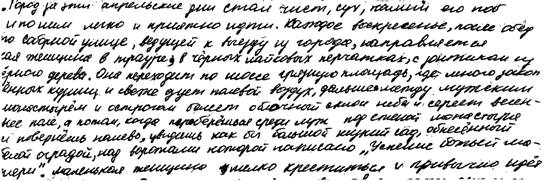 "Город за эти апрельские дни стал чист, сух, камни его поб
и по ним легко и приятно идти. Каждое воскресенье, после обед
по Соборной улице, ведущей к выезду из города, направляется
ая женщина в трауре, в чёрных лайковых перчатках, с зонтиком из
ёрного дерева. Она переходит по шоссе грязную площадь, где много закоп
ённых кузниц и свежо дует полевой воздух, дальше между мужским
монастырём и острогом белеет облачный склон неба и сереет весен-
нее поле, а потом, когда проберёшься среди луж под стеной монастыря
и повернёшь налево, увидишь как бы большой низкий сад, обнесённый
белой оградой, над воротами которой написано „Успение Божьей ма-
тери". Маленькая женщина мелко крестится и привычно идёт